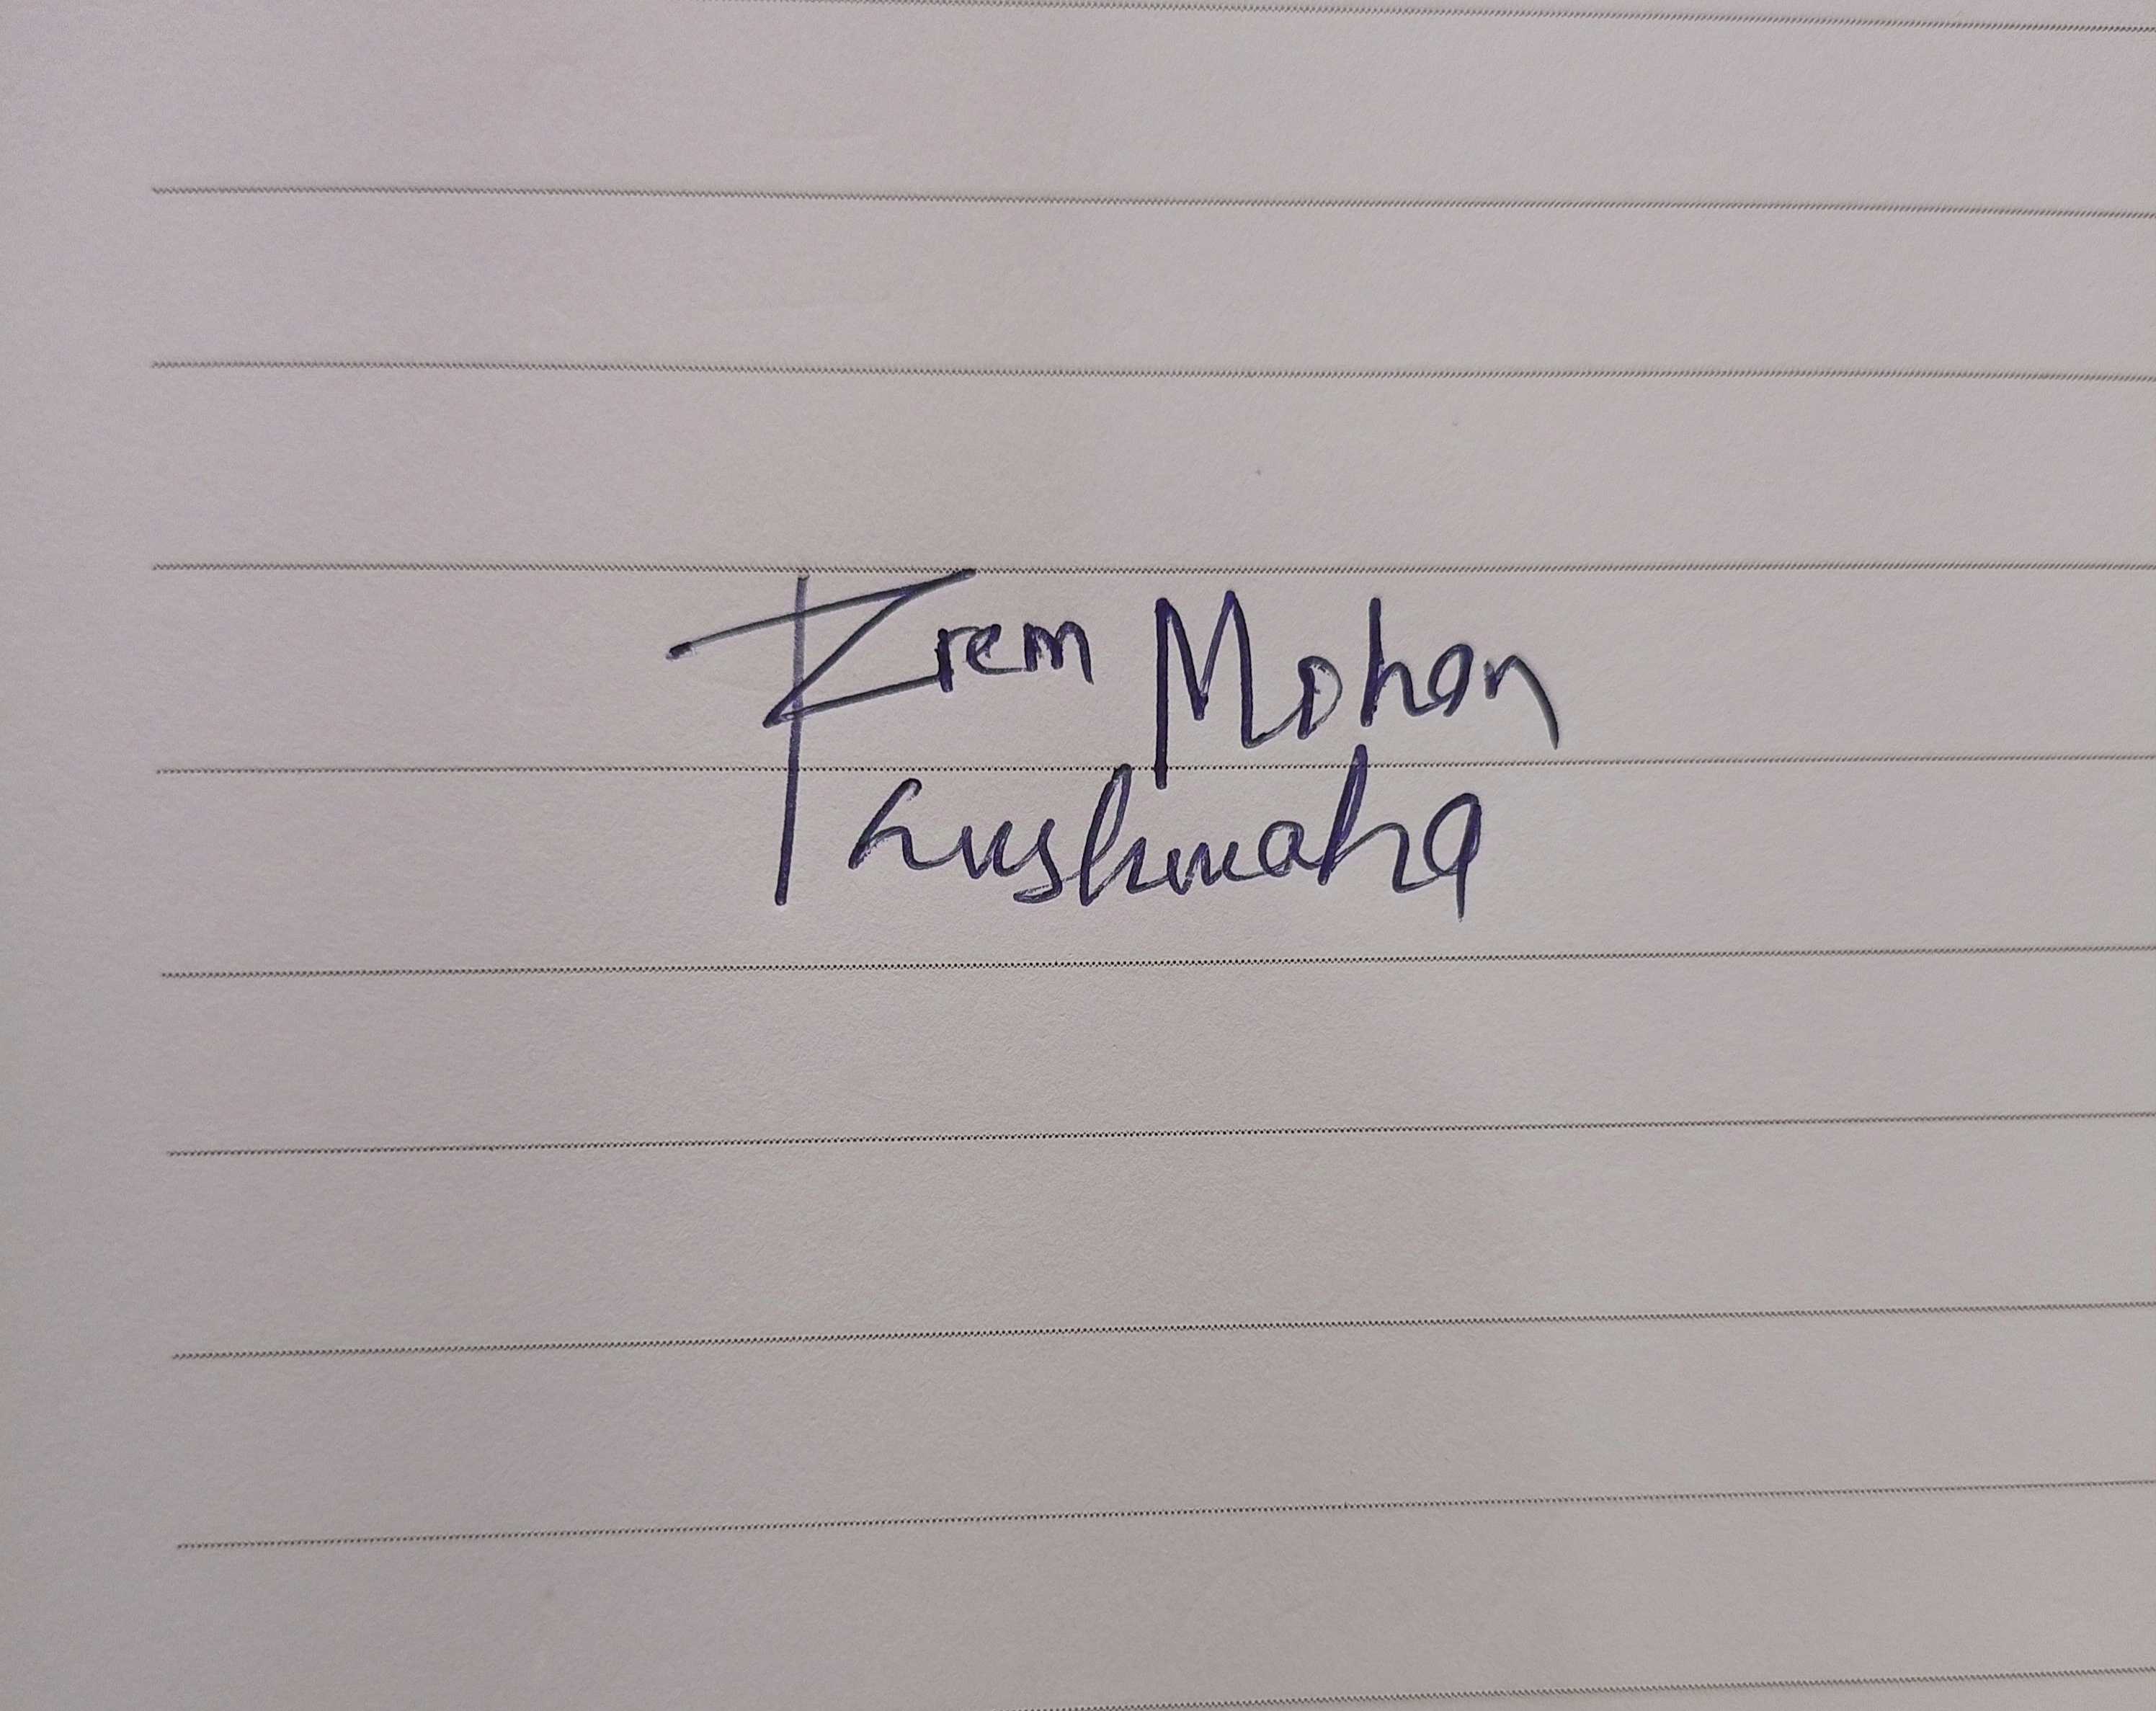 Prem Mohan
Kushwaha